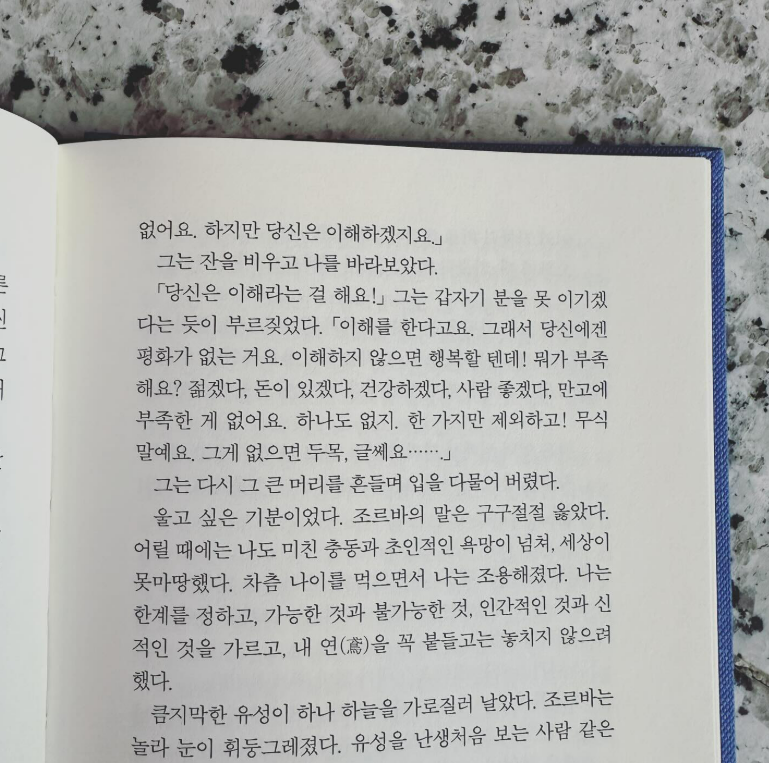 없어요. 하지만 당신은 이해하겠지요.」
그는 잔을 비우고 나를 바라보았다.
「당신은 이해라는 걸 해요!」 그는 갑자기 분을 못 이기겠
다는 듯이 부르짖었다. 「이해를 한다고요. 그래서 당신에겐
평화가 없는 거요. 이해하지 않으면 행복할 텐데! 뭐가 부족
해요? 젊겠다, 돈이 있겠다, 건강하겠다, 사람 좋겠다, 만고에
부족한 게 없어요. 하나도 없지. 한 가지만 제외하고! 무식
말예요. 그게 없으면 두목, 글쎄요…….」
그는 다시 그 큰 머리를 흔들며 입을 다물어 버렸다.
울고 싶은 기분이었다. 조르바의 말은 구구절절 옳았다.
어릴 때에는 나도 미친 충동과 초인적인 욕망이 넘쳐, 세상이
못마땅했다. 차츰 나이를 먹으면서 나는 조용해졌다. 나는
한계를 정하고, 가능한 것과 불가능한 것, 인간적인 것과 신
적인 것을 가르고, 내 연(鳶)을 꼭 붙들고는 놓치지 않으려
했다.
큼지막한 유성이 하나 하늘을 가로질러 날았다. 조르바는
놀라 눈이 휘둥그레졌다. 유성을 난생처음 보는 사람 같은